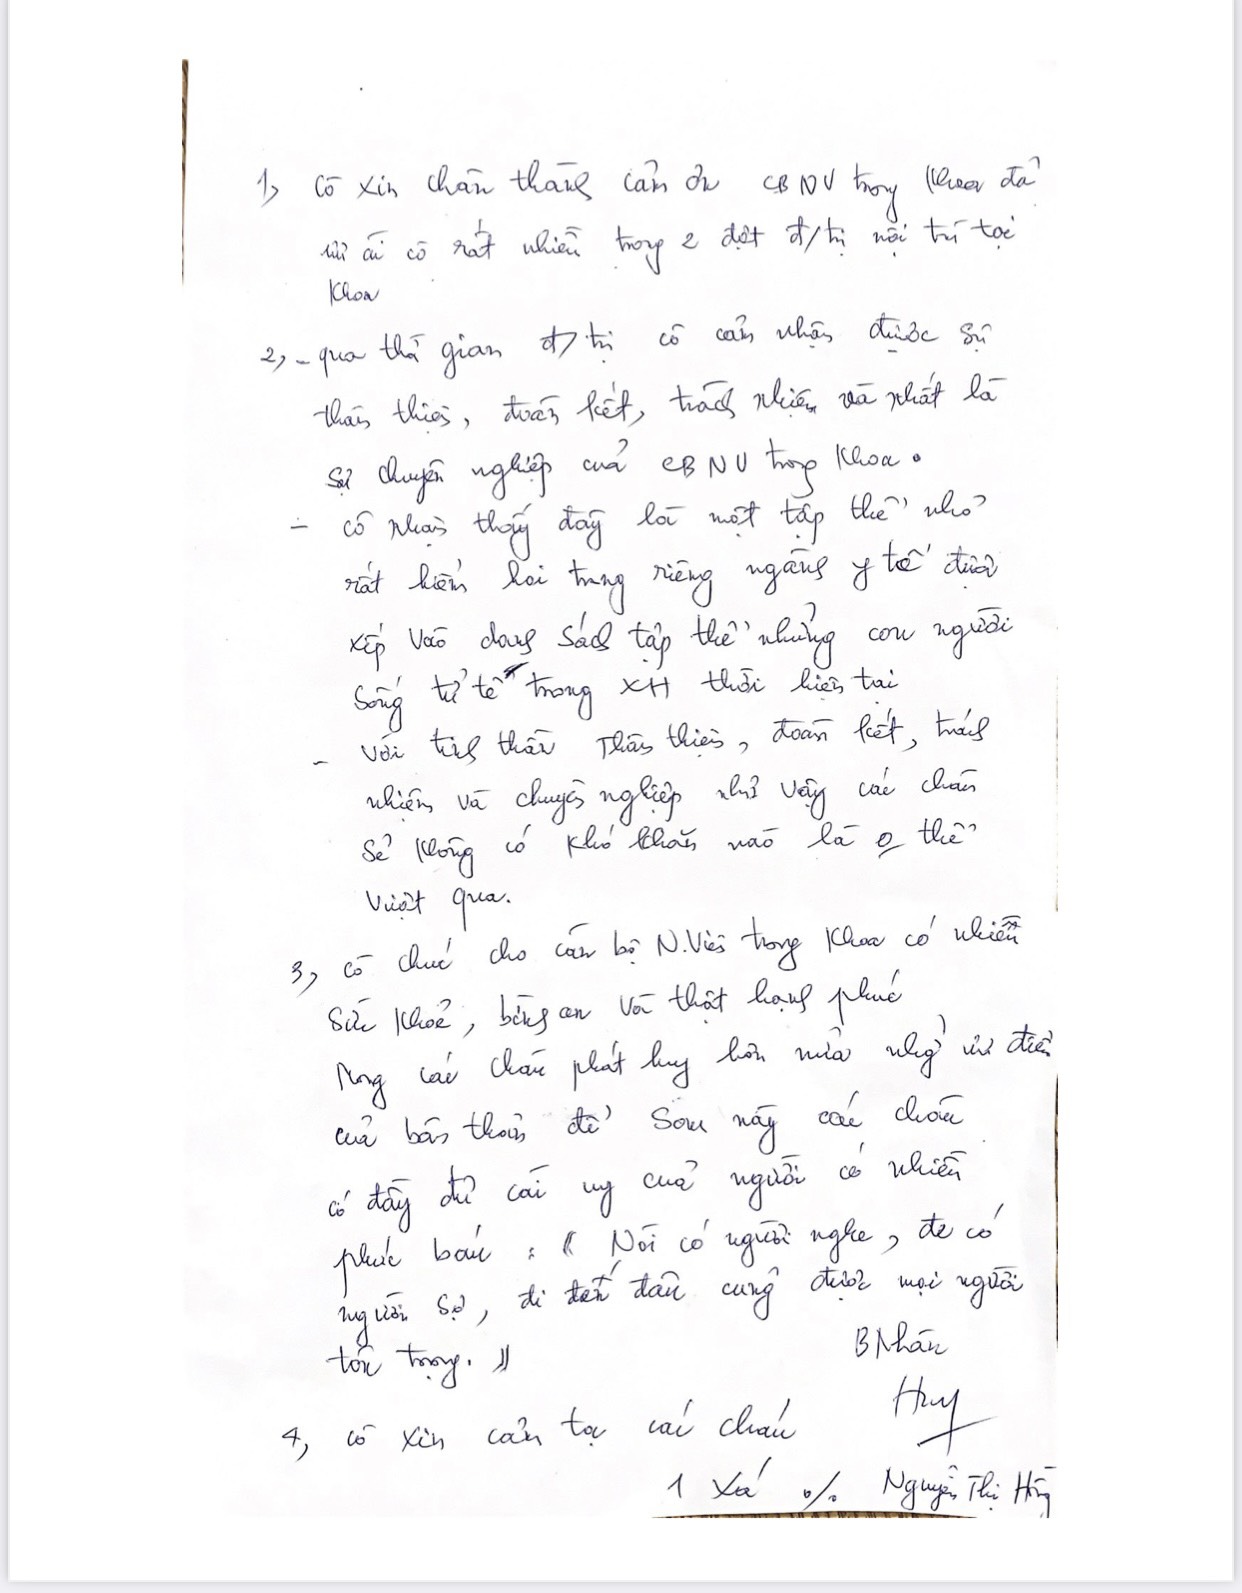 1, Cô xin chân thành cảm ơn CBNV trong Khoa đã
ưu ái cô rất nhiều trong 2 đợt đ/trị nội trú tại
Khoa
2, - qua thời gian đ/trị cô cảm nhận được sự
thân thiện, đoàn kết, trách nhiệm và nhất là
sự chuyên nghiệp của CBNV trong Khoa.
- cô nhận thấy đây là một tập thể nhỏ
rất hiếm hoi trong riêng ngành y tế được
xếp vào danh sách tập thể những con người
sống tử tế trong XH thời hiện tại
- với tinh thần Thân thiện, đoàn kết, trách
nhiệm và chuyên nghiệp như vậy các cháu
sẽ không có khó khăn nào là o thể
vượt qua.
3, cô chúc cho cán bộ N.Viên trong Khoa có nhiều
sức khoẻ, bình an và thật hạnh phúc
Mong các cháu phát huy hơn nữa những ưu điểm
của bản thân để sau này các cháu
có đầy đủ cái uy của người có nhiều
phúc báu : "Nói có người nghe, đe có
người sợ, đi đến đâu cũng được mọi người
tôn trọng."
BNhân
4, cô xin cảm tạ các cháu
Nguyễn Thị